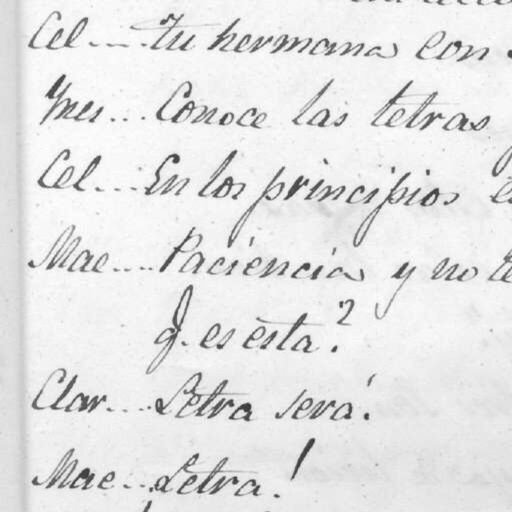 Cel....tu hermana con
Ynes... Conoce las letras
Cel....En los principios
Mae....Paciencia y no te
q. es esta?
Clar...Letra será.
Mae...Letra!